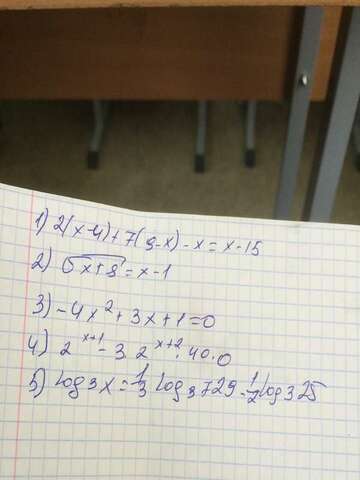 1) 2(x-4)+7(9-x)-x=x-15
2) √5x+8=x-1
3) -4x²+3x+1=0
4) 2^x+1-3.2^x+2.40.0
5) log3x=1/3log3729-1/2log325